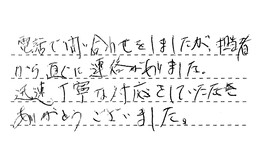 電話で問い合わせをしましたが、担当者
から直ぐに連絡がありました。
迅速、丁寧な対応をしていただき
ありがとうございました。